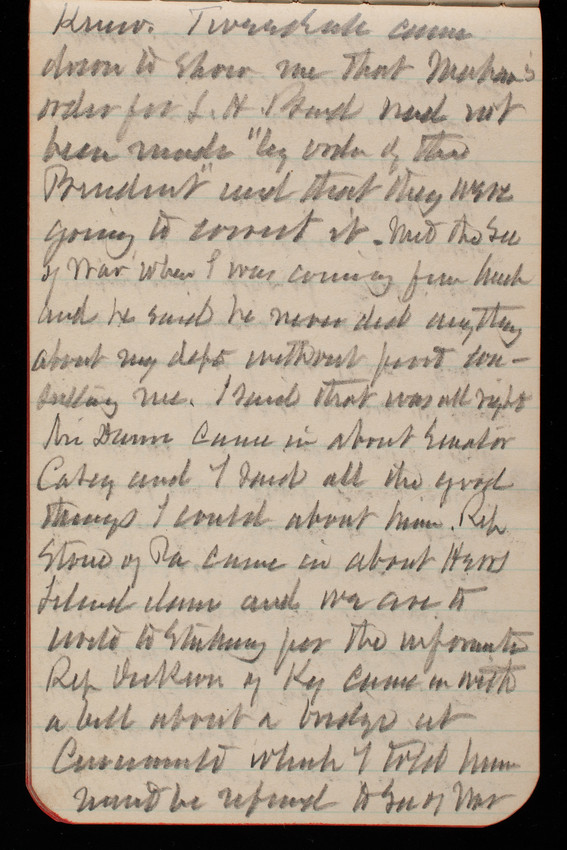 Knew. Tweesdale came
down to show me that
order for L. H. had not
been made "by order of the
President" and that they were
going to correct it. Met the Sec
of War when I was coming from lunch
and he said he never did anything
about my dept without first con-
sulting me. I said that was all right
Mr Dunn came in about Senator
Casey and I said all the good
things I could about him. Rep
Stone of Pa came in about Herrs
Island dam and we are to
write to Stickney for the information
Rep Dickson of Ky came in with
a bill about a bridge at
Cincinnati which I told him
must be referred to Sec of War